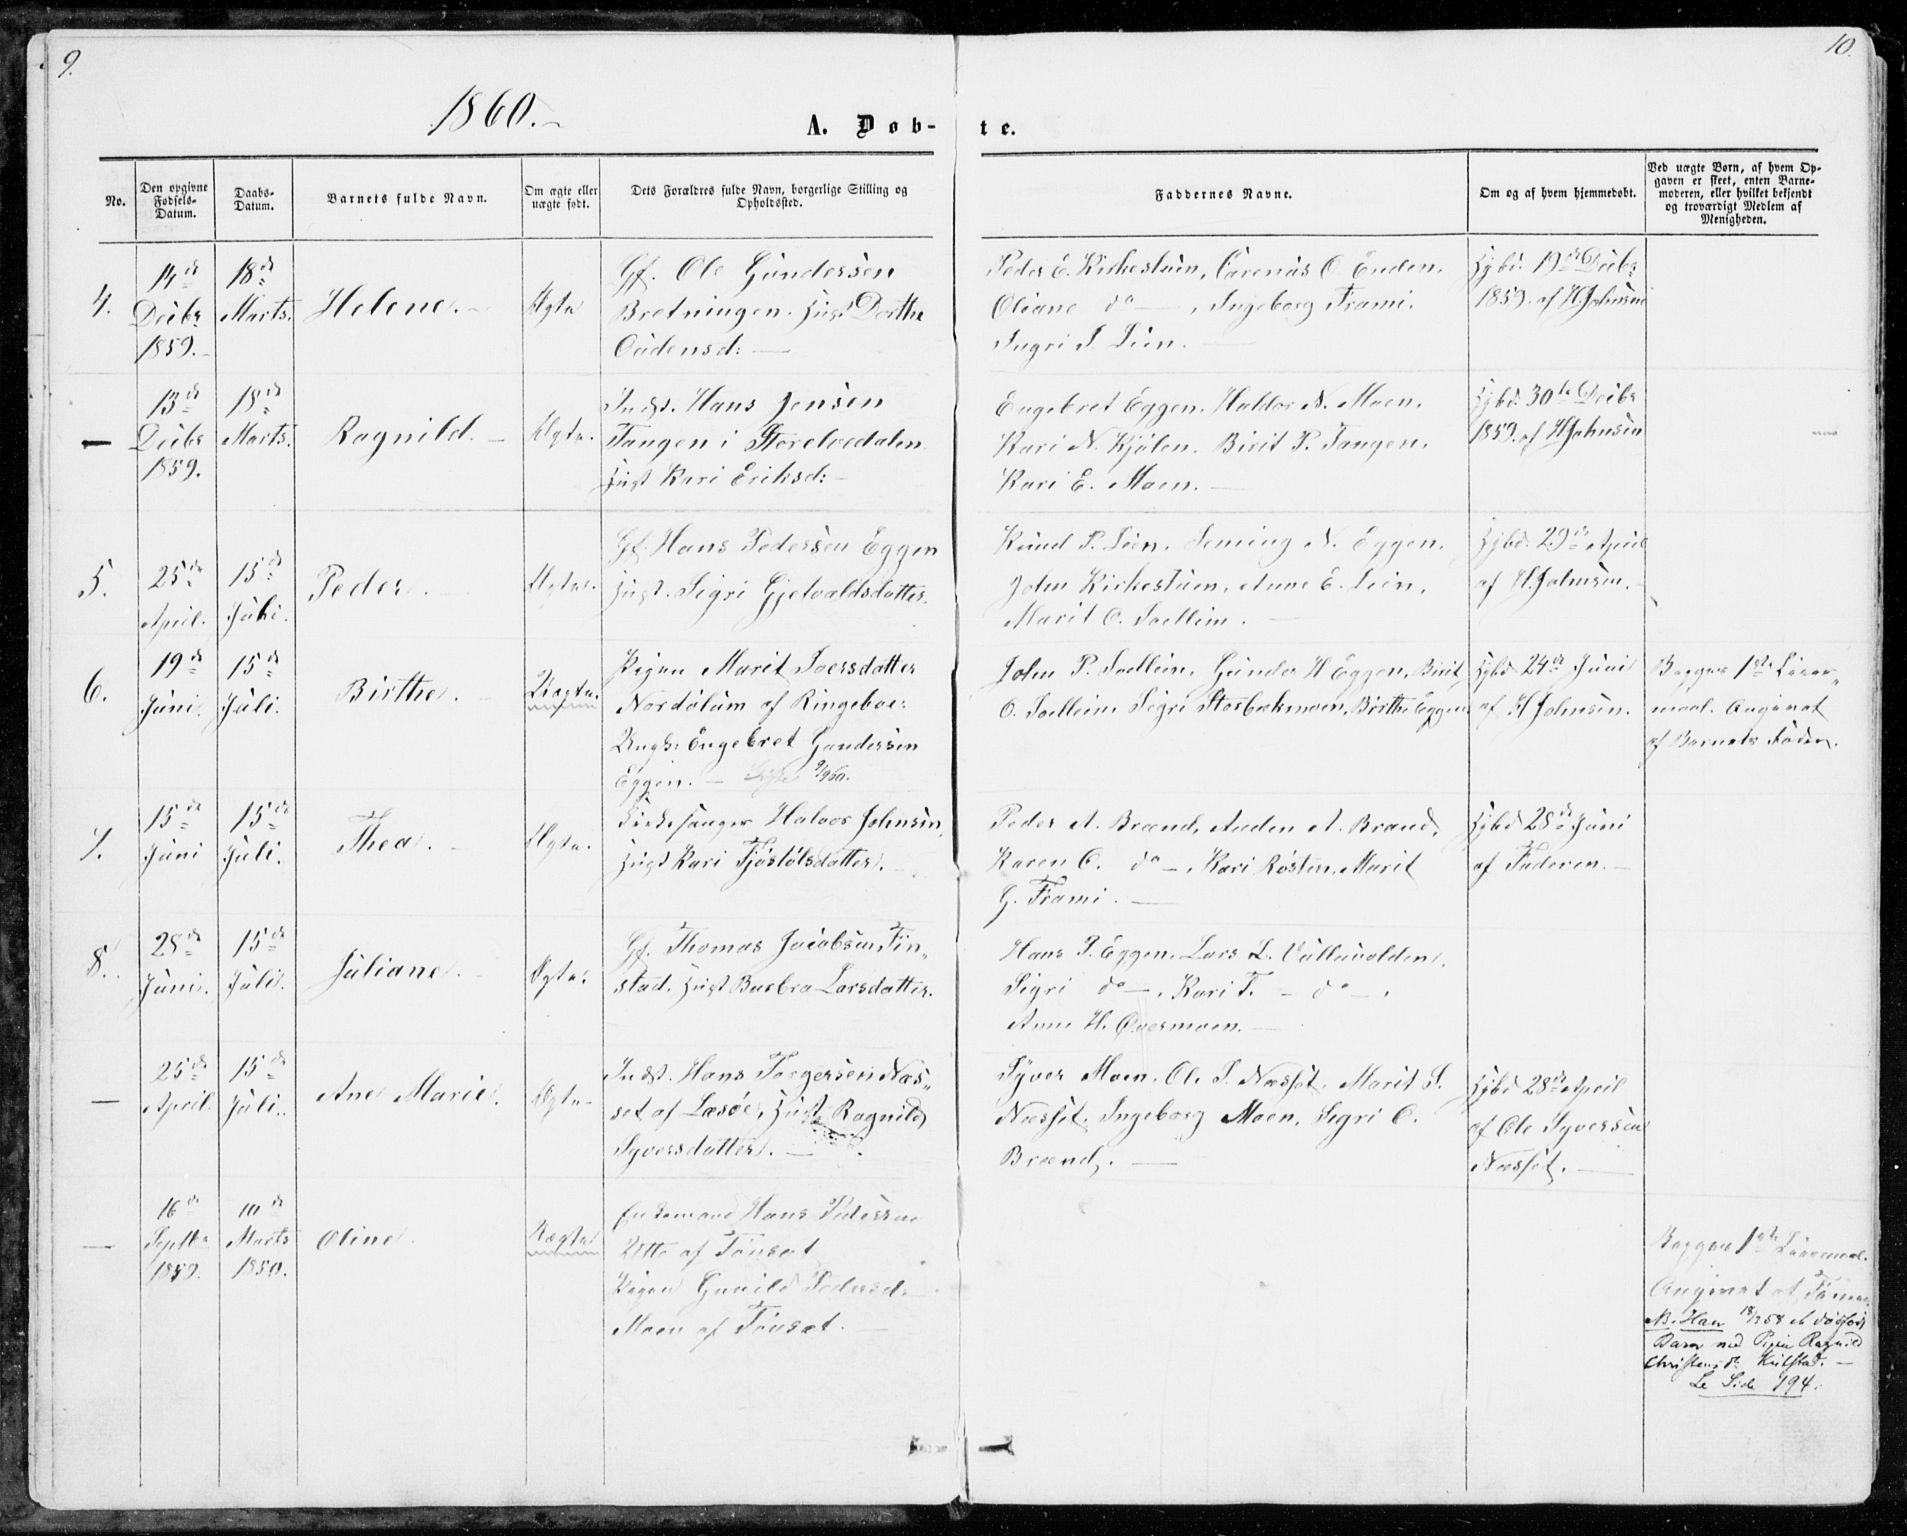 9.
10.
1860.
A. Døb-
te.
No.
Den opgivne Fødsels-Datum.
Daabs-Datum.
Barnets fulde Navn.
Om ægte eller uægte født.
Dets Forældres fulde Navn, borgerlige Stilling og Opholdssted.
Faddernes Navne.
Om og af hvem hjemmedøbt.
Ved uægte Børn, af hvem Op-
gaven er skeet, enten Barne-
moderen, eller hvilket bekjendt
og troværdigt Medlem af
Menigheden.
4.
14de
Decbr
1859.
18de
Marts.
Helene.
Ægte
Gf. Ole Gundersen
Bretningen. Hust Dorthe
Oudensd:
Peder E. Kirkestuen, Carenus O. Enden.
Oliane do, Ingeborg Frami.
Ingri T. Lien.
Hjbd. 19de Decbr
1859. af H Johnsen
13de
Decbr
1859.
18de
Marts.
Ragnild.
Ægte.
Indst. Hans Jensen
Tangen i Storelvedalen
Hust Kari Eriksd:
Engebret Eggen. Haldor N. Moen.
Kari N. Kjølen. Birit P. Tangen.
Kari E. Moen.
Hjbd. 30te Decbr
1859. af H Johnsen
5.
25de
April.
15de
Juli.
Peder.
Ægte.
Gf. Hans Pedersen Eggen
Hust. Sigri Gjelvaldsdatter.
Knud P. Lien. Seming N. Eggen.
John Kirkestuen, Anne E. Lien.
Marit O. Solliem.
Hjbd. 29de April
af H. Johnsen.
6.
19de
Juni.
15de
Juli.
Birthe.
Uægte.
Pigen Marit Iversdatter
Nordølum af Ringeboe:
Ungk: Engebret Gundersen
Eggen.
John P. Sollein, Gunder H Eggen, Birit
O. Sollein, Sigri Storbækmoen, Birthe Eggen
Hjbd 24de Juni
af H Johnsen.
Begges 1ste Leier-
maal. Angivet
af Barnets Fader.
7.
15de
Juni
15de
Juli.
Thea.
Ægte.
Kirkesanger Halvor Johnsen,
Hust Kari Tjøstølsdatter.
Peder A. Brænd, Auden A. Brænd,
Karen O. do, Kari Røsten, Marit
G. Frami.
Hjbd 28de Juni
af Faderen.
8.
28de
Juni.
15de
Juli.
Juliane.
Ægte.
Gf. Thomas Jacobsen Fin-
stad. Hust Barbra Larsdatter.
Hans P. Eggen. Lars L. Vulluvolden.
Sigri do, Kari T. do.
Anne H. Øvermoen.
25de
April.
15de
Juli.
Ane Marie.
Ægte
Indst. Hans Torgersen Næs-
set af Læsøe, Hust Ragnild
Syversdatter.
Syver Moen. Ole S. Næsset. Marit S.
Næsset. Ingeborg Moen, Sigri O.
Brænd.
Hjbd 28de April
af Ole Syversen
Næsset.
16de
Septbr
1859.
Marts
Oline.
Uægte
Enkemand Hans Pedersen
Utte af Tønset
Pigen Gunild Pedersd:
Moen af Tønset.
Begges 1ste Leiermaal.
Angivet af
NB. Han 18/2 58 et dødfødt
Barn med Pigen Ragnild
Christensdr Kulstad.
Se Side 194.